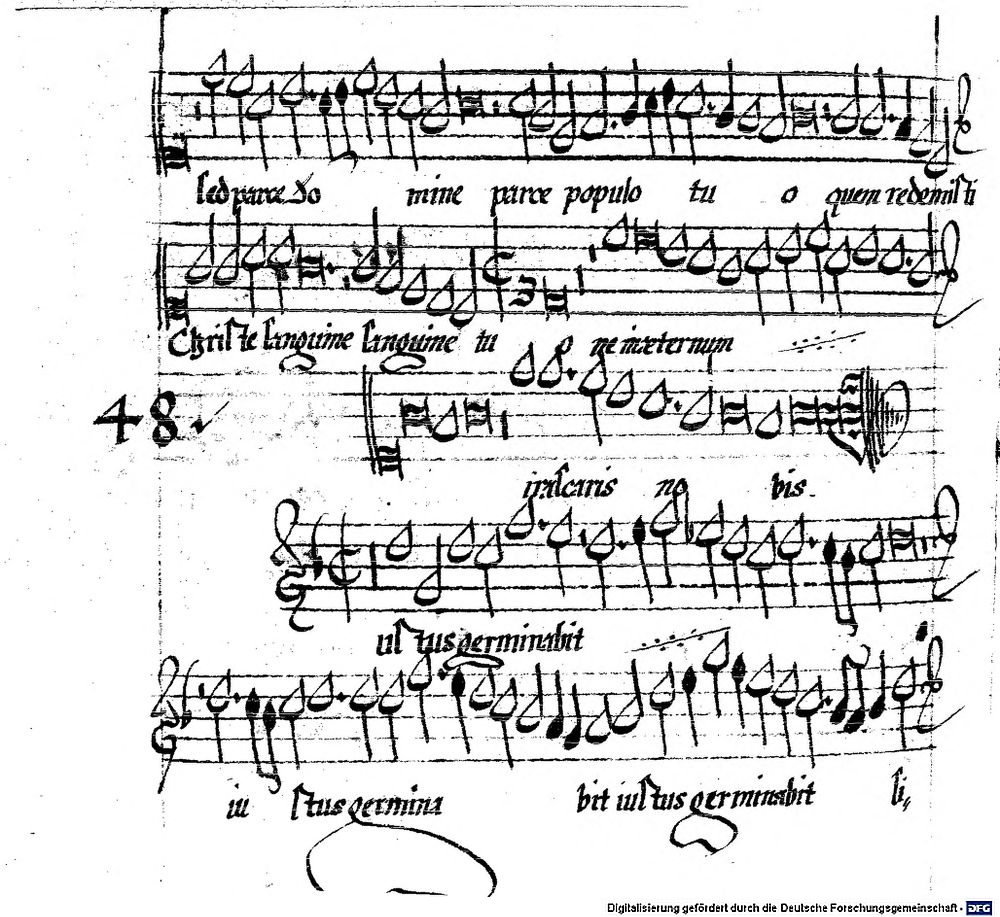 sed parce do mine parce populo tu o quem redemisti
Christe sanguine sanguine tu o ne inæternum
48
irascaris no bis.
iustus germinabit
iu stus germina bit iustus germinabit si,,
Digitalisierung gefördert durch die Deutsche Forschungsgemeinschaft - DFG